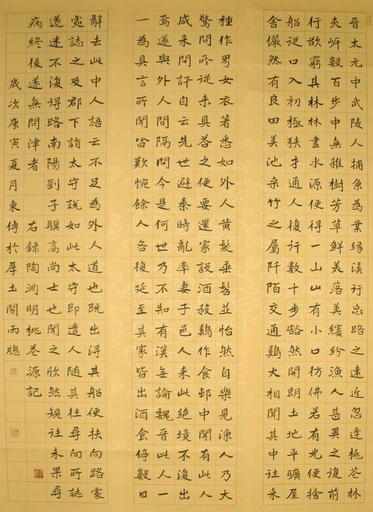 晉太元中武陵人捕魚為業緣溪行忘路之遠近忽逢桃花林
夾岸數百步中無雜樹芳草鮮美落英繽紛漁人甚異之復前
行欲窮其林林盡水源便得一山山有小口彷彿若有光便捨
船從口入初極狹才通人復行數十步豁然開朗土地平曠屋
舍儼然有良田美池桑竹之屬阡陌交通鷄犬相聞其中往來
種作男女衣著悉如外人黃髮垂髫並怡然自樂見漁人乃大
驚問所從來具答之便要還家設酒殺鷄作食邨中聞有此人
咸來問訊自云先世避秦時亂率妻子邑人來此絕境不復出
焉遂與外人間隔問今是何世乃不知有漢無論魏晉此人一
一為具言所聞皆歎惋餘人各復延至其家皆出酒食停數日
辭去此中人語云不足為外人道也既出得其船便扶向路處
處誌之及郡下詣太守說如此太守即遣人隨其往尋向所誌
遂迷不復得路南陽劉子驥高尚士也聞之欣然規往未果尋
病終後遂無問津者 右錄陶淵明桃花源記
歲次庚寅夏月東倚於厚土閣雨牕